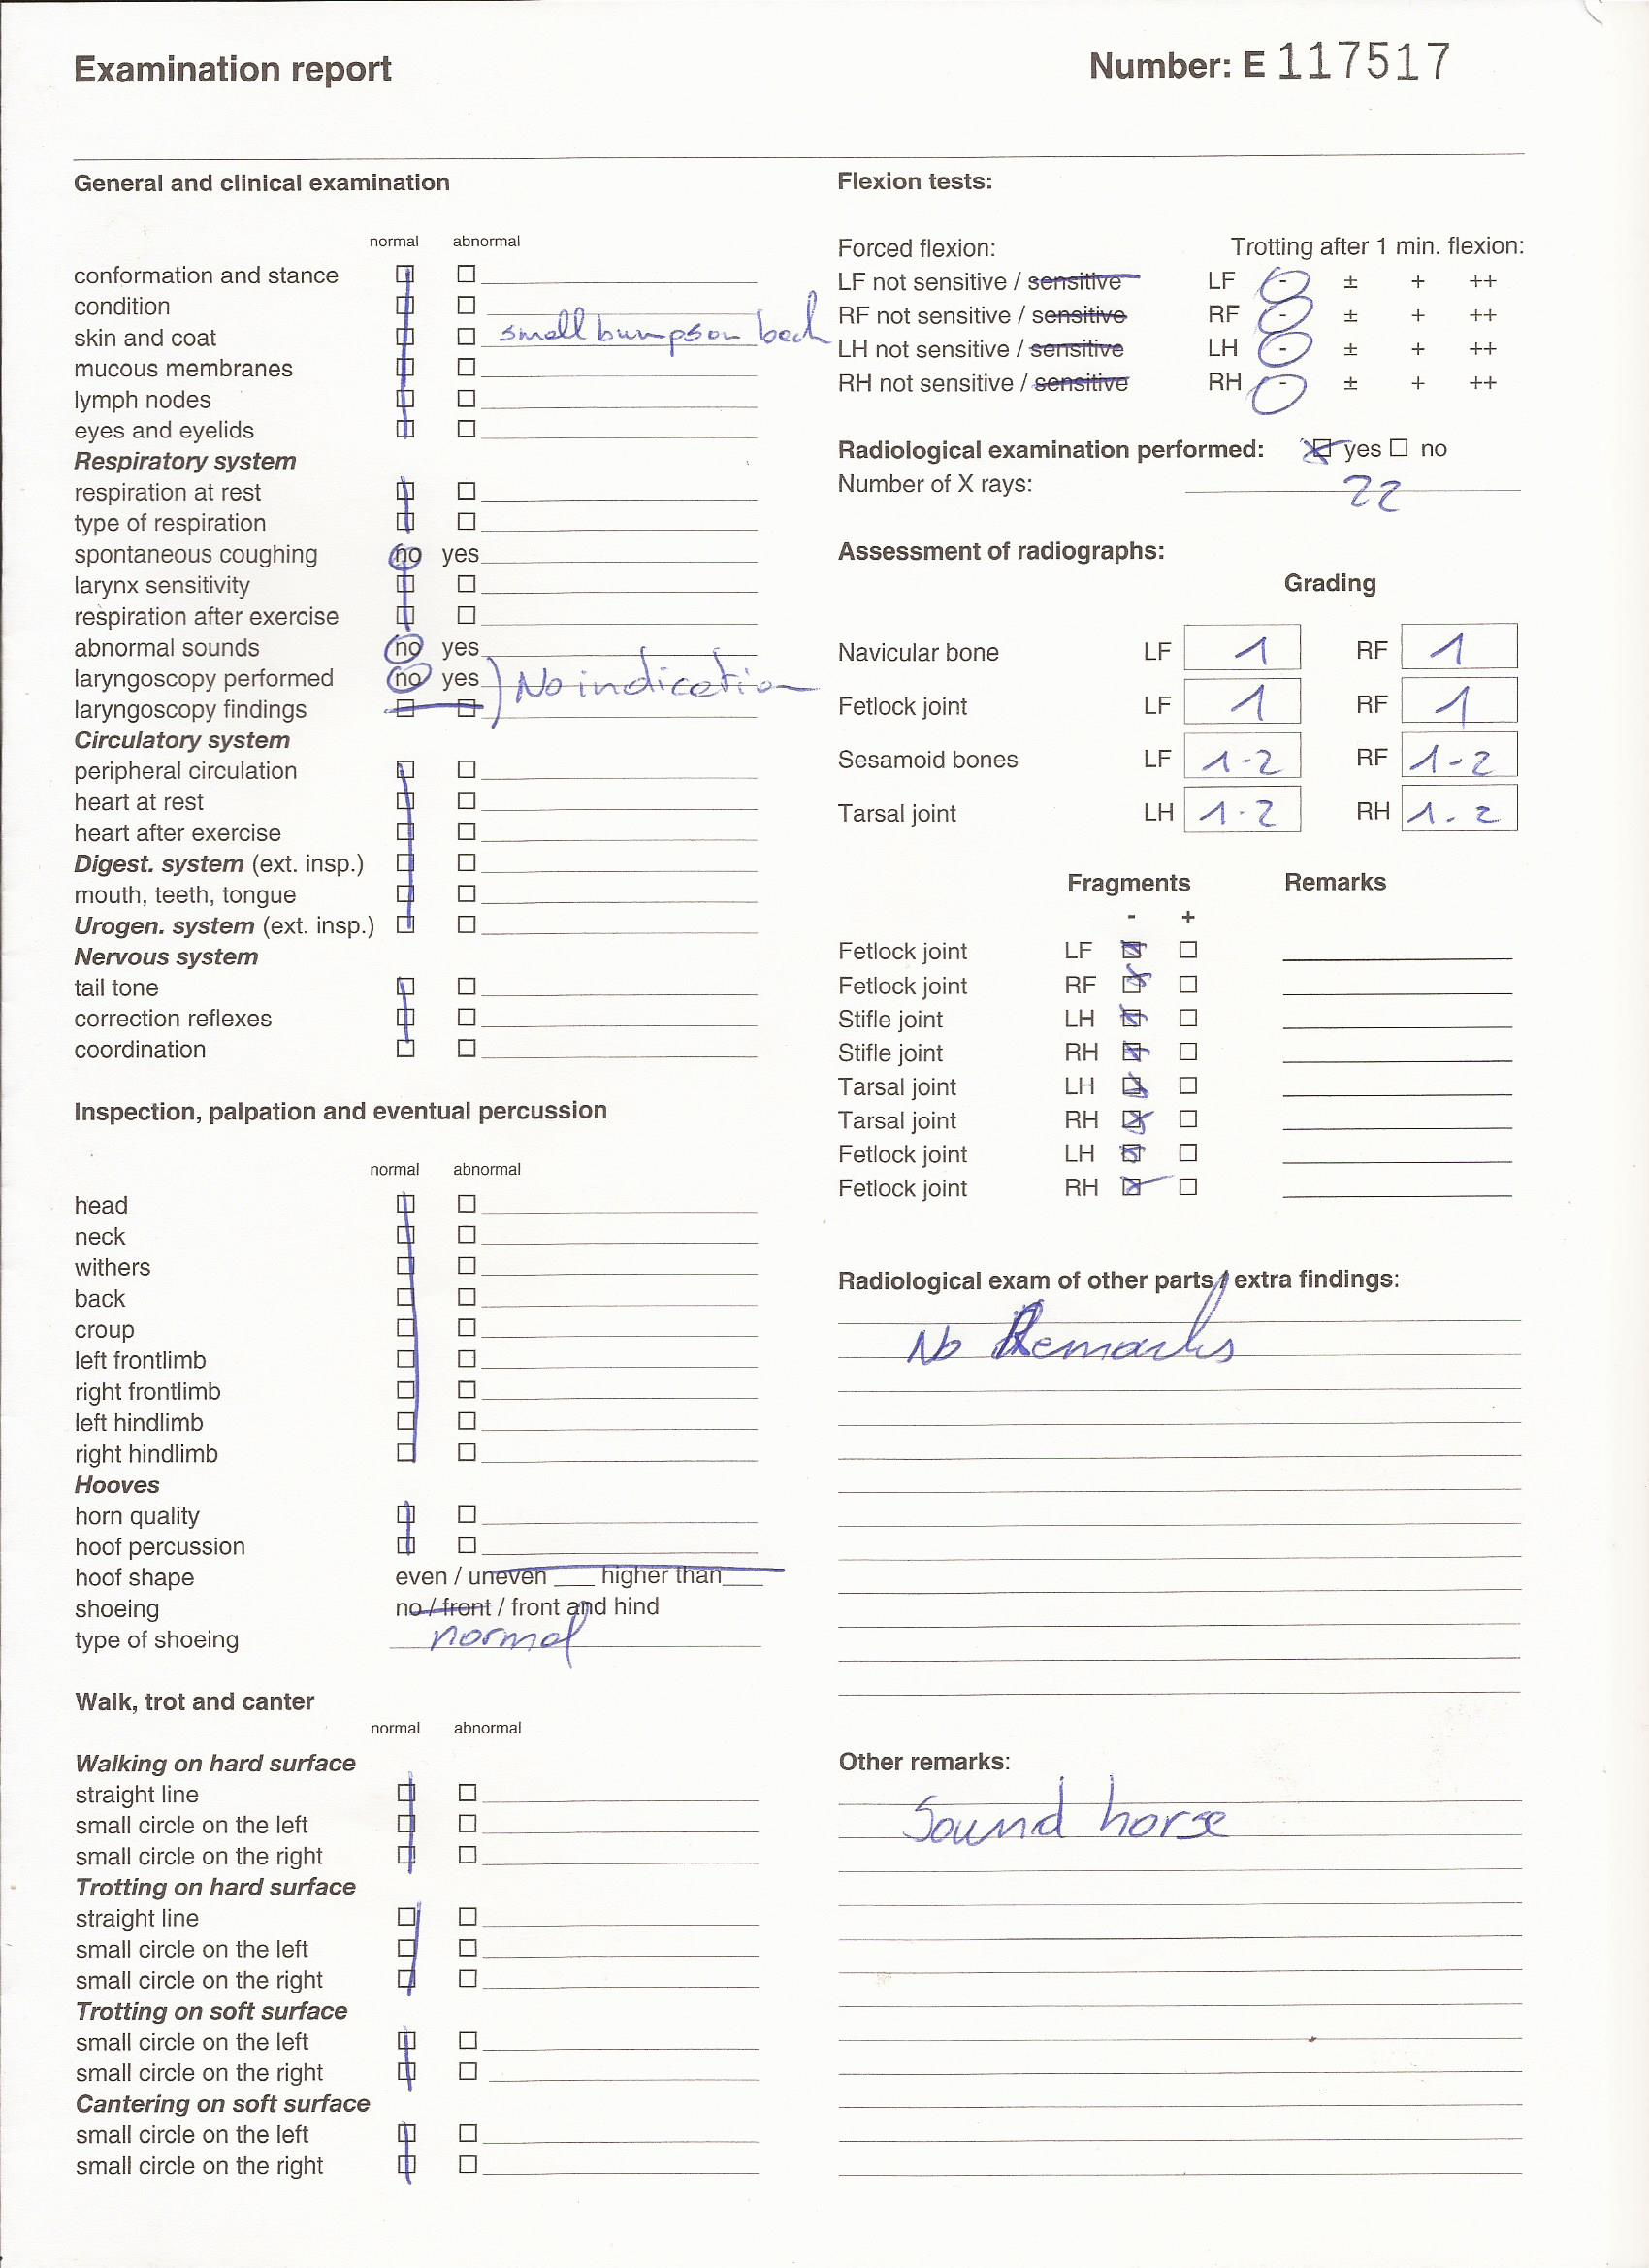 Examination report
Number: E 117517
General and clinical examination
normal abnormal
conformation and stance
condition
skin and coat small bumps on back
mucous membranes
lymph nodes
eyes and eyelids
Respiratory system
respiration at rest
type of respiration
spontaneous coughing no yes
larynx sensitivity
respiration after exercise
abnormal sounds no yes
laryngoscopy performed no yes ) No indication
laryngoscopy findings
Circulatory system
peripheral circulation
heart at rest
heart after exercise
Digest. system (ext. insp.)
mouth, teeth, tongue
Urogen. system (ext. insp.)
Nervous system
tail tone
correction reflexes
coordination
Inspection, palpation and eventual percussion
normal abnormal
head
neck
withers
back
croup
left frontlimb
right frontlimb
left hindlimb
right hindlimb
Hooves
horn quality
hoof percussion
hoof shape even / uneven ___ higher than___
shoeing no / front / front and hind
type of shoeing normal
Walk, trot and canter
normal abnormal
Walking on hard surface
straight line
small circle on the left
small circle on the right
Trotting on hard surface
straight line
small circle on the left
small circle on the right
Trotting on soft surface
small circle on the left
small circle on the right
Cantering on soft surface
small circle on the left
small circle on the right
Flexion tests:
Forced flexion: Trotting after 1 min. flexion:
LF not sensitive / sensitive LF - ± + ++
RF not sensitive / sensitive RF - ± + ++
LH not sensitive / sensitive LH - ± + ++
RH not sensitive / sensitive RH - ± + ++
Radiological examination performed: yes no
Number of X rays: 22
Assessment of radiographs:
Grading
Navicular bone LF 1 RF 1
Fetlock joint LF 1 RF 1
Sesamoid bones LF 1-2 RF 1-2
Tarsal joint LH 1-2 RH 1-2
Fragments Remarks
- +
Fetlock joint LF
Fetlock joint RF
Stifle joint LH
Stifle joint RH
Tarsal joint LH
Tarsal joint RH
Fetlock joint LH
Fetlock joint RH
Radiological exam of other parts / extra findings:
No Remarks
Other remarks:
Sound horse